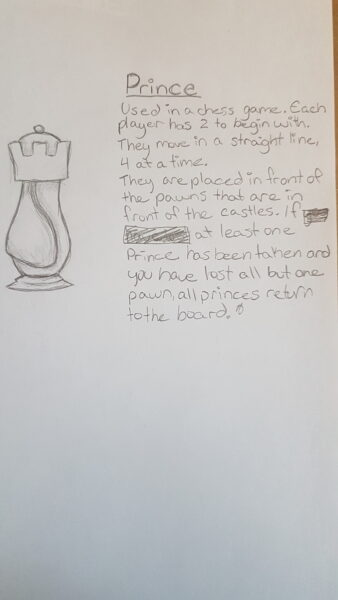 Prince
Used in a chess game. Each
player has 2 to begin with.
They move in a straight line,
4 at a time.
They are placed in front of
the pawns that are in
front of the castles. If
at least one
Prince has been taken and
you have lost all but one
pawn, all princes return
to the board.